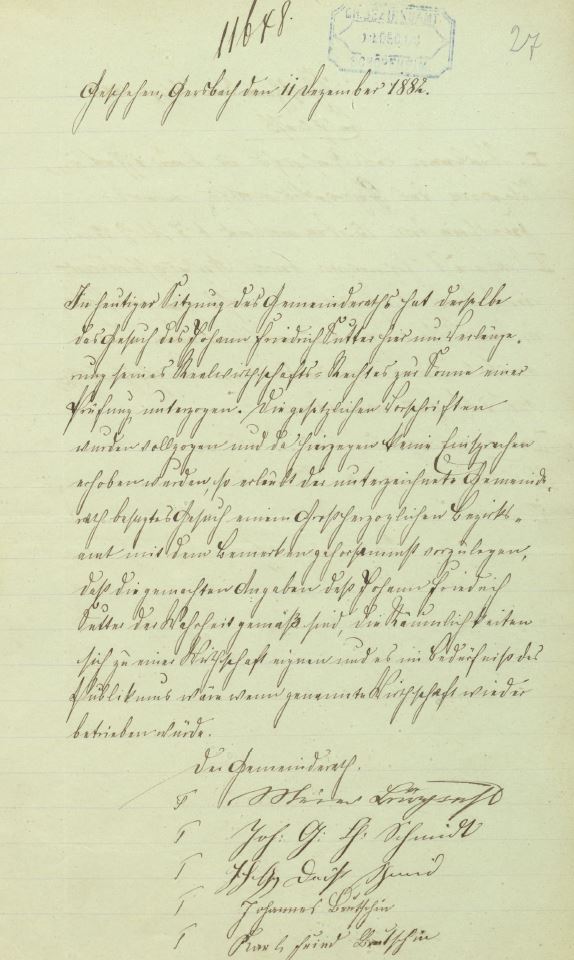 11648.
GR. BEZIRKSAMT
27
Geschehen, Gersbach den 11 Dezember 1882.
In heutiger Sitzung des Gemeinderaths hat derselbe
das Gesuch des Johann Friedrich Sutter hier um Verlänge-
rung seines Realwirthschafts-Rechtes zur Sonne einer
Prüfung unterzogen. Die gesetzlichen Vorschriften
wurden vollzogen und da hiergegen keine Einsprachen
erhoben wurden, so erlaubt der unterzeichnete Gemeinde-
rath besagtes Gesuch einem Großherzoglichen Bezirks-
amt mit dem Bemerken gehorsammst vorzulegen,
daß die gemachten Angaben daß Johann Friedrich
Sutter der Wahrheit gemäß sind, die Räumlichkeiten
sich zu einer Wirthschaft eignen und es im Bedürfniß des
Publikums wäre wenn genannte Wirthschaft wieder
betrieben würde.
Der Gemeinderath.
Joh: G: Schmidt
Johannes Brutschin
Karl Fried Brutschin